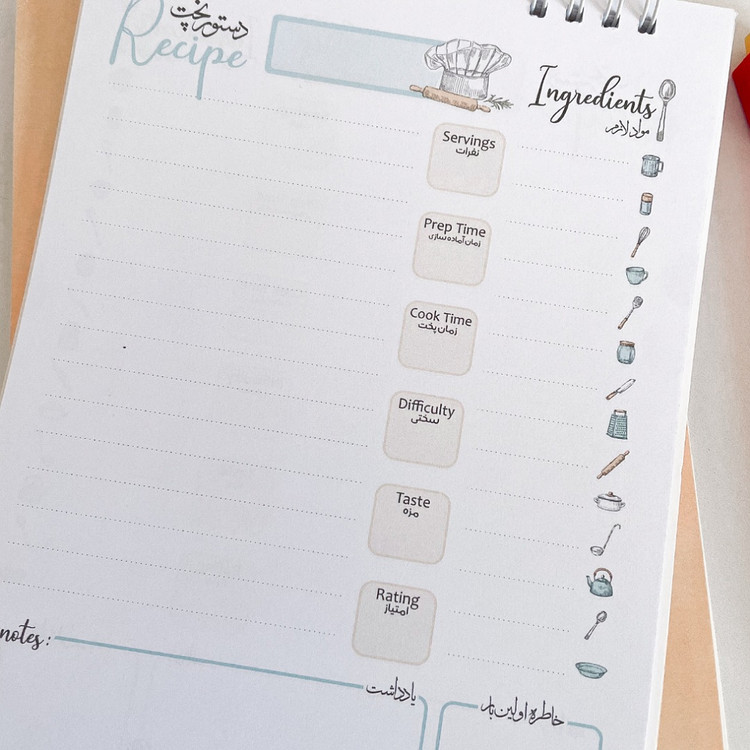 دستور پخت
Recipe
Ingredients
مواد لازم
Servings
نفرات
Prep Time
زمان آماده سازی
Cook Time
زمان پخت
Difficulty
سختی
Taste
مزه
Rating
امتیاز
notes:
یادداشت
خاطره اولین بار